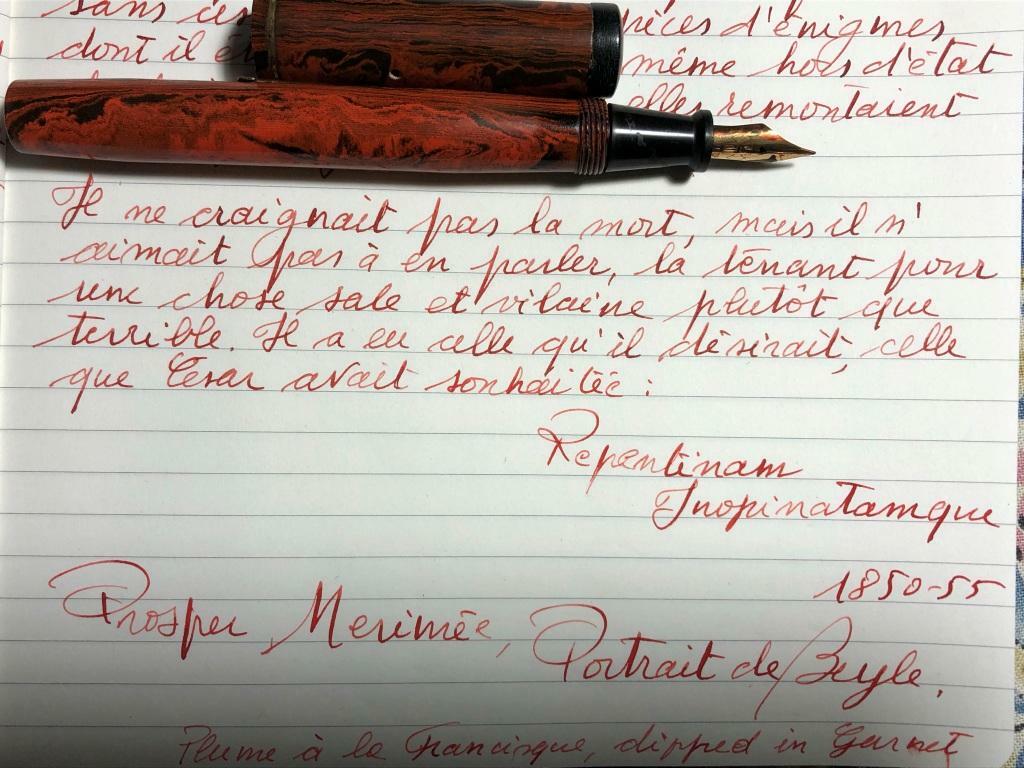 sans ces pièces d'énigmes
dont il même hors d'état
elles remontaient
Il ne craignait pas la mort, mais il n'
aimait pas à en parler, la tenant pour
une chose sale et vilaine plutôt que
terrible. Il a eu celle qu'il désirait, celle
que César avait souhaitée :
Repentinam
Inopinatamque
1850-55
Prosper Merimée,
Portrait de Beyle.
Plume à la Francisque, dipped in Garnet